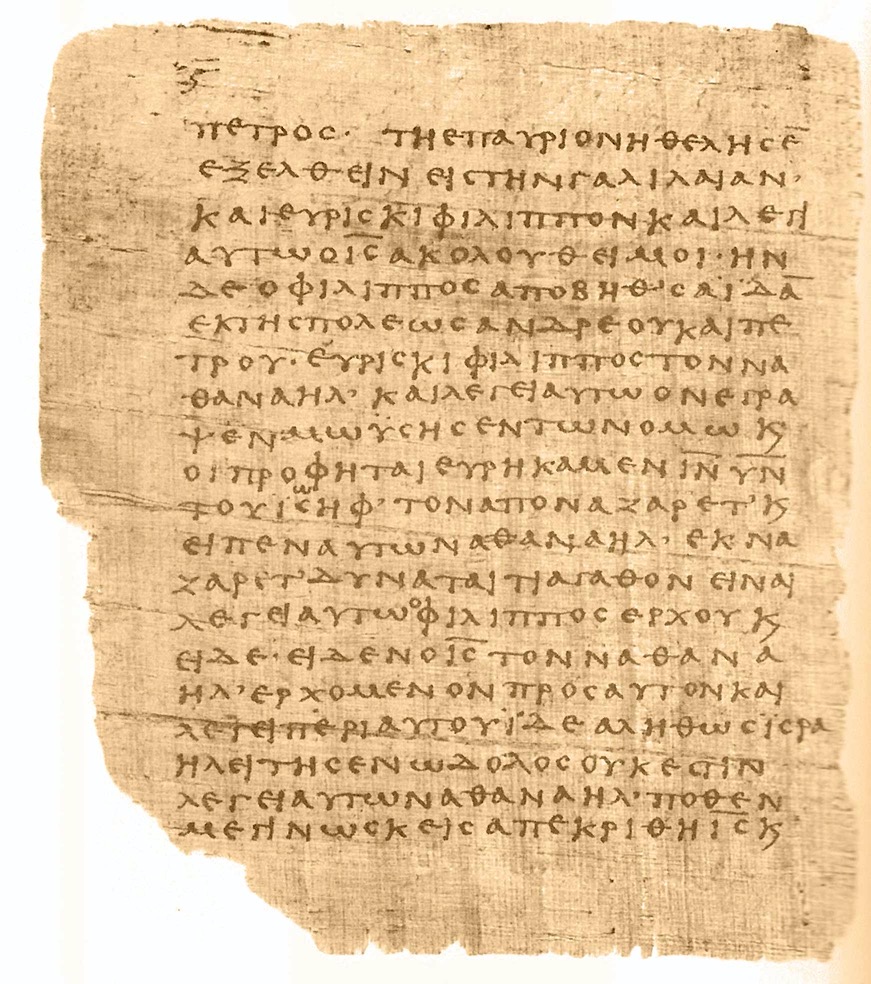 ϛ̅
ΠΕΤΡΟϹ· ΤΗ ΕΠΑΥΡΙΟΝ ΗΘΕΛΗϹΕ̅
ΕΞΕΛΘΕΙΝ ΕΙϹ ΤΗΝ ΓΑΛΙΛΑΙΑΝ·
ΚΑΙ ΕΥΡΙϹΚΙ ΦΙΛΙΠΠΟΝ ΚΑΙ ΛΕΓΙ
ΑΥΤΩ Ο Ι̅Ϲ̅ ΑΚΟΛΟΥΘΕΙ ΜΟΙ· ΗΝ
ΔΕ Ο ΦΙΛΙΠΠΟϹ ΑΠΟ ΒΗΘ'ϹΑΙΔΑ̅
ΕΚ ΤΗϹ ΠΟΛΕΩϹ ΑΝΔΡΕΟΥ ΚΑΙ ΠΕ
ΤΡΟΥ· ΕΥΡΙϹΚΙ ΦΙΛΙΠΠΟϹ ΤΟΝ ΝΑ
ΘΑΝΑΗΛ' ΚΑΙ ΛΕΓΕΙ ΑΥΤΩ ΟΝ ΕΓΡΑ
ΨΕΝ ΜΩΫϹΗϹ ΕΝ ΤΩ ΝΟΜΩ Κ͵
ΟΙ ΠΡΟΦΗΤΑΙ ΕΥΡΗΚΑΜΕΝ Ι̅Ν̅ Υ̅Ν̅
ΤΟΥ ΙωϹΗΦ' ΤΟΝ ΑΠΟ ΝΑΖΑΡΕΤ' Κ͵
ΕΙΠΕΝ ΑΥΤΩ ΝΑΘΑΝΑΗΛ· ΕΚ ΝΑ
ΖΑΡΕΤ' ΔΥΝΑΤΑΙ ΤΙ ΑΓΑΘΟΝ ΕΙΝΑΙ
ΛΕΓΕΙ ΑΥΤΩ ο ΦΙΛΙΠΠΟϹ ΕΡΧΟΥ Κ͵
ΕΙΔΕ· ΕΙΔΕΝ Ο Ι̅Ϲ̅ ΤΟΝ ΝΑΘΑΝΑ
ΗΛ' ΕΡΧΟΜΕΝΟΝ ΠΡΟϹ ΑΥΤΟΝ ΚΑΙ
ΛΕΓΕΙ ΠΕΡΙ ΑΥΤΟΥ ΪΔΕ ΑΛΗΘΩϹ ΙϹΡΑ
ΗΛΕΙΤΗϹ ΕΝ Ω ΔΟΛΟϹ ΟΥΚ ΕϹΤΙΝ
ΛΕΓΕΙ ΑΥΤΩ ΝΑΘΑΝΑΗΛ' ΠΟΘΕΝ
ΜΕ ΓΙΝΩϹΚΕΙϹ ΑΠΕΚΡΙΘΗ Ι̅Ϲ̅ Κ͵